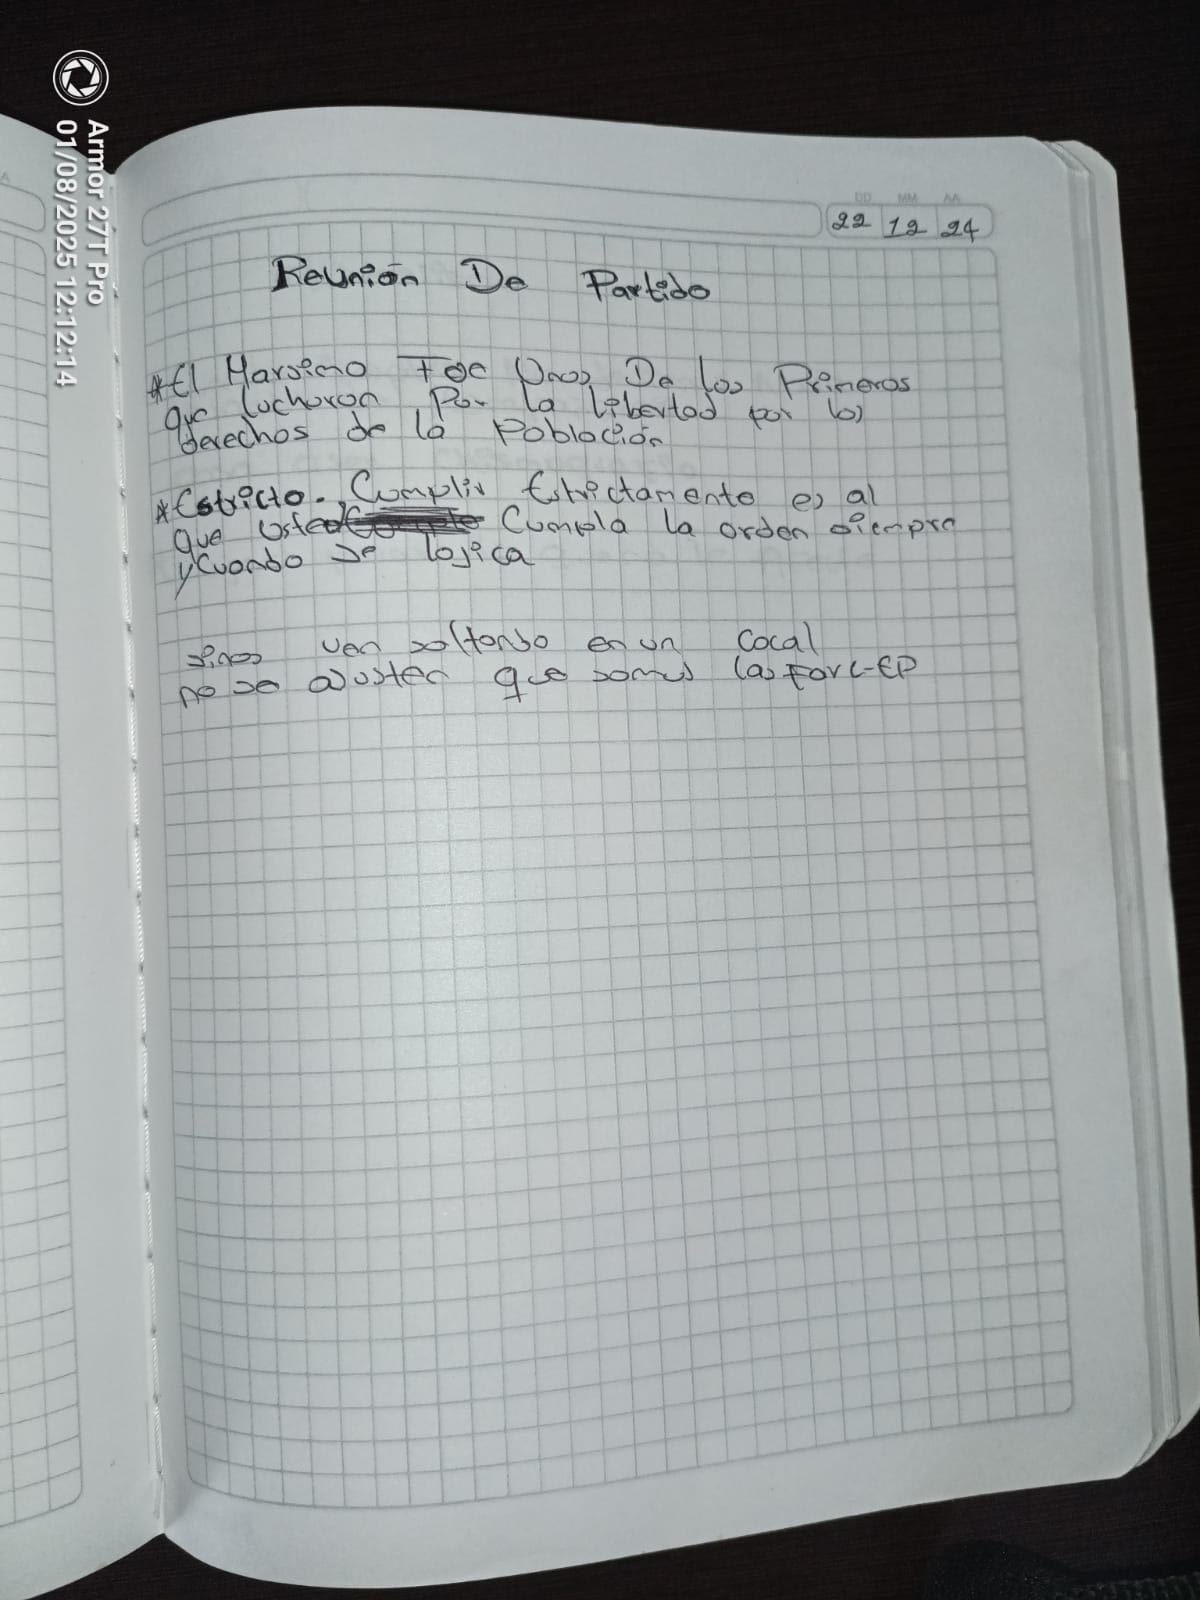 Armor 27T Pro
01/08/2025 12:12:14
DD MM AA
22 12 24
Reunión De Partido
*El Marsimo Fue Unos De los Primeros
que lucharon Por la libertad por los
derechos de la Población
*Estricto. Cumplir Estrictamente es al
que usted Cumpla la orden siempre
y Cuando se logica
sinos ven saltando en un Cocal
no se asusten que somos las Farc-EP